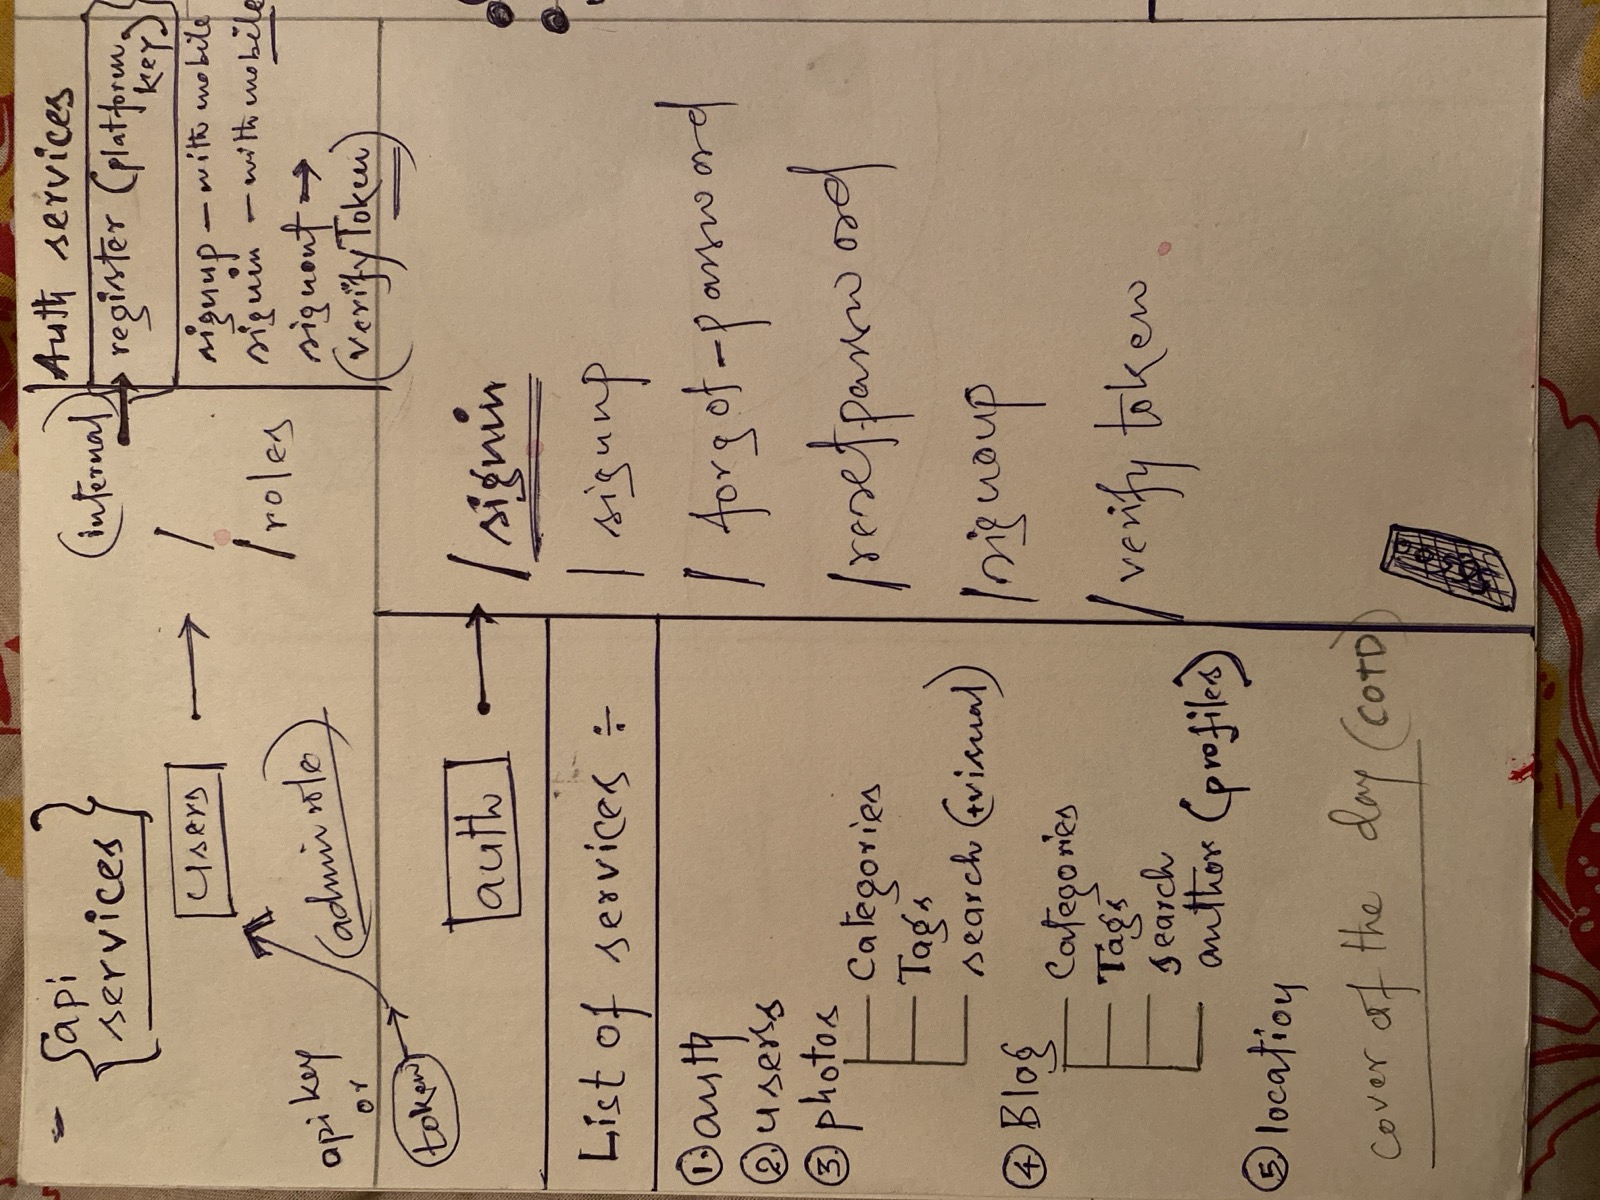 { api
services }
users
/
/roles
(internal)
(admin role)
api key
or
token
Auth services
register (platform
key)
signup - with mobile
signin - with mobile
signout →
(verifyToken)
auth
/signin
/signup
/forgot-password
/resetpassword
/signoup
/verify token
List of services ÷
① auth
② users
③ photos
Categories
Tags
search (+visual)
④ Blog
Categories
Tags
search
author (profiles)
⑤ location
cover of the day (COTD)